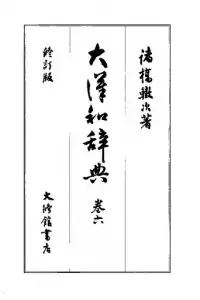 諸橋轍次著
大漢和辞典
巻六
修訂版
大修館書店